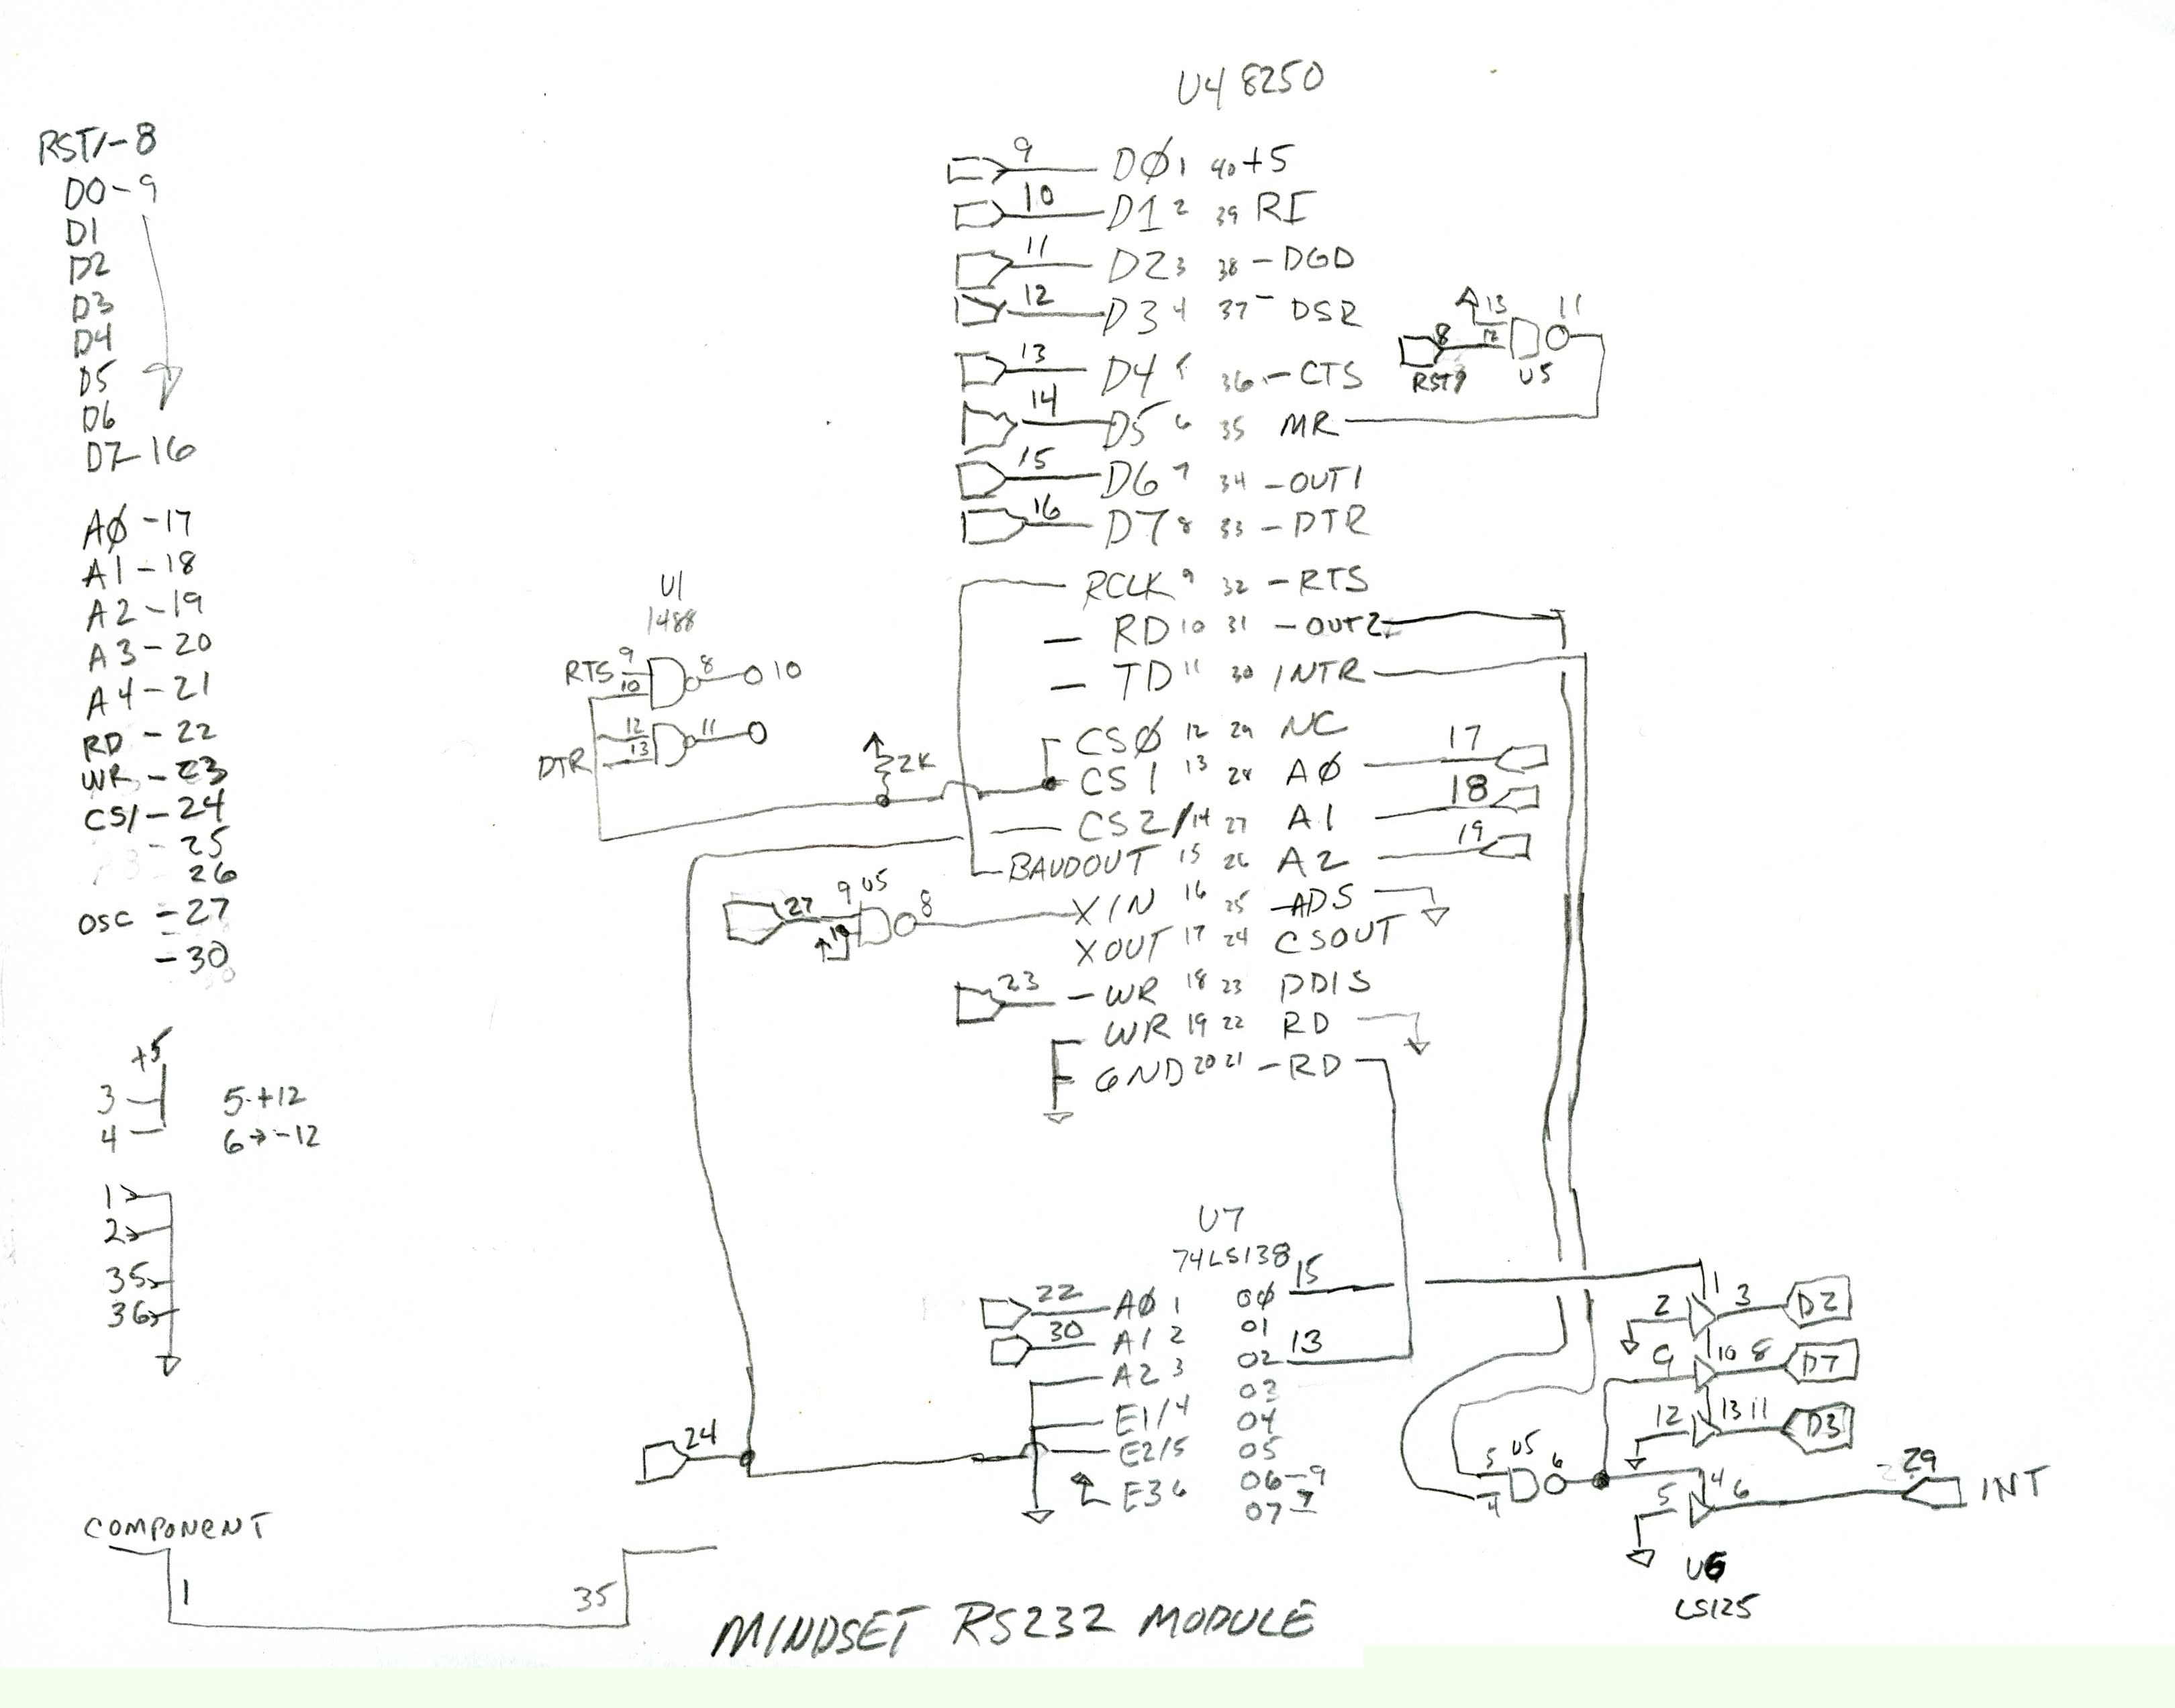 U4 8250
RST/-8
D0-9
D1
D2
D3
D4
D5
D6
D7-16
AØ-17
A1-18
A2-19
A3-20
A4-21
RD-22
WR-23
CS/-24
-25
26
OSC-27
-30
+5
3
4
5-+12
6→-12
1
2
35
36
COMPONENT
1 35
9 DØ 1 40 +5
10 D1 2 39 RI
11 D2 3 38 -DGD
12 D3 4 37 -DSR
13 D4 5 36 -CTS
14 D5 6 35 MR
15 D6 7 34 -OUT1
16 D7 8 33 -DTR
RCLK 9 32 -RTS
- RD 10 31 -OUT2
- TD 11 30 INTR
CSØ 12 29 NC
CS1 13 28 AØ 17
CS2/14 27 A1 18
BAUDOUT 15 26 A2 19
XIN 16 25 -ADS
XOUT 17 24 CSOUT
23 -WR 18 23 DDIS
WR 19 22 RD
GND 20 21 -RD
13 11
8 12
RST/ U5
U1
1488
RTS 9 8 10
10
12 11
DTR 13
2K
27 9 U5 8
10
U7
74LS138
22 AØ 1 OØ 15
30 A1 2 O1
A2 3 O2 13
O3
E1/4 O4
24 E2/5 O5
E3 6 O6-9
O7-7
1
2 3 D2
9 10 8 D7
12 13 11 D3
5 U5 6
4
4
5 6 29 INT
U6
LS125
MINDSET RS232 MODULE